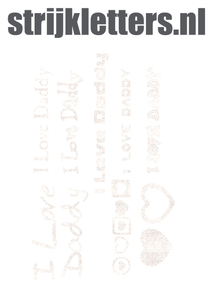 strijkletters.nl
I Love Daddy
I Love Daddy
I Love Daddy
I LOVE DADDY
I Love Daddy
I Love
Daddy